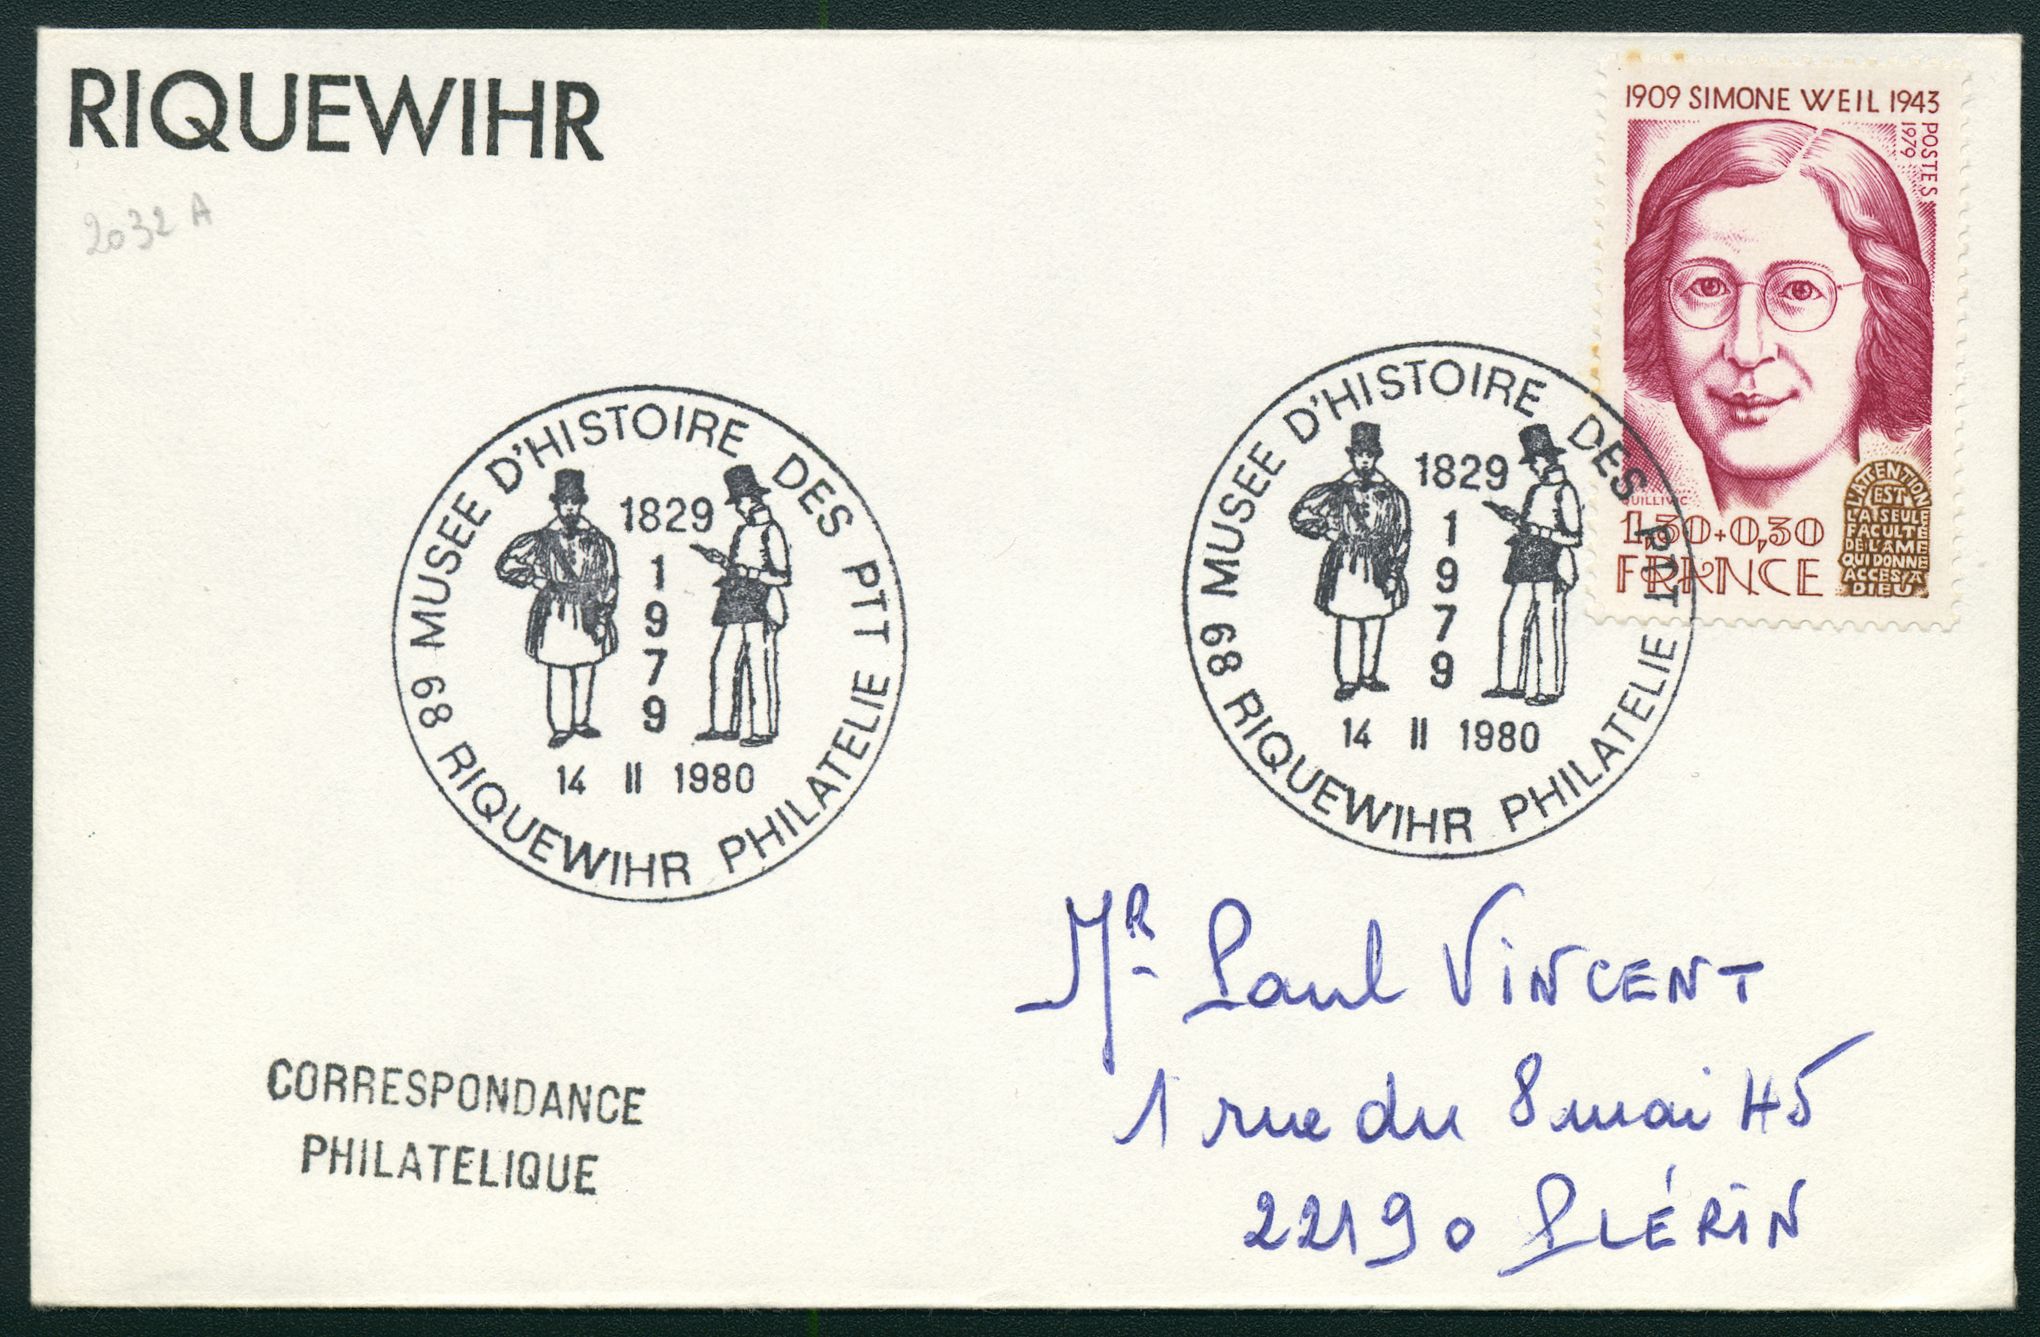 RIQUEWIHR
2032 A
1909 SIMONE WEIL 1943
POSTES
1979
QUILLIVIC
1,30+0,30
FRANCE
L'ATTENTION
EST
LA SEULE
FACULTÉ
DE L'ÂME
QUI DONNE
ACCÈS À
DIEU
68 MUSEE D'HISTOIRE DES PTT
1829
1
9
7
9
14 II 1980
RIQUEWIHR PHILATELIE
68 MUSEE D'HISTOIRE DES PTT
1829
1
9
7
9
14 II 1980
RIQUEWIHR PHILATELIE
Mr Paul VINCENT
1 rue du 8 mai 45
22190 PLÉRIN
CORRESPONDANCE
PHILATELIQUE